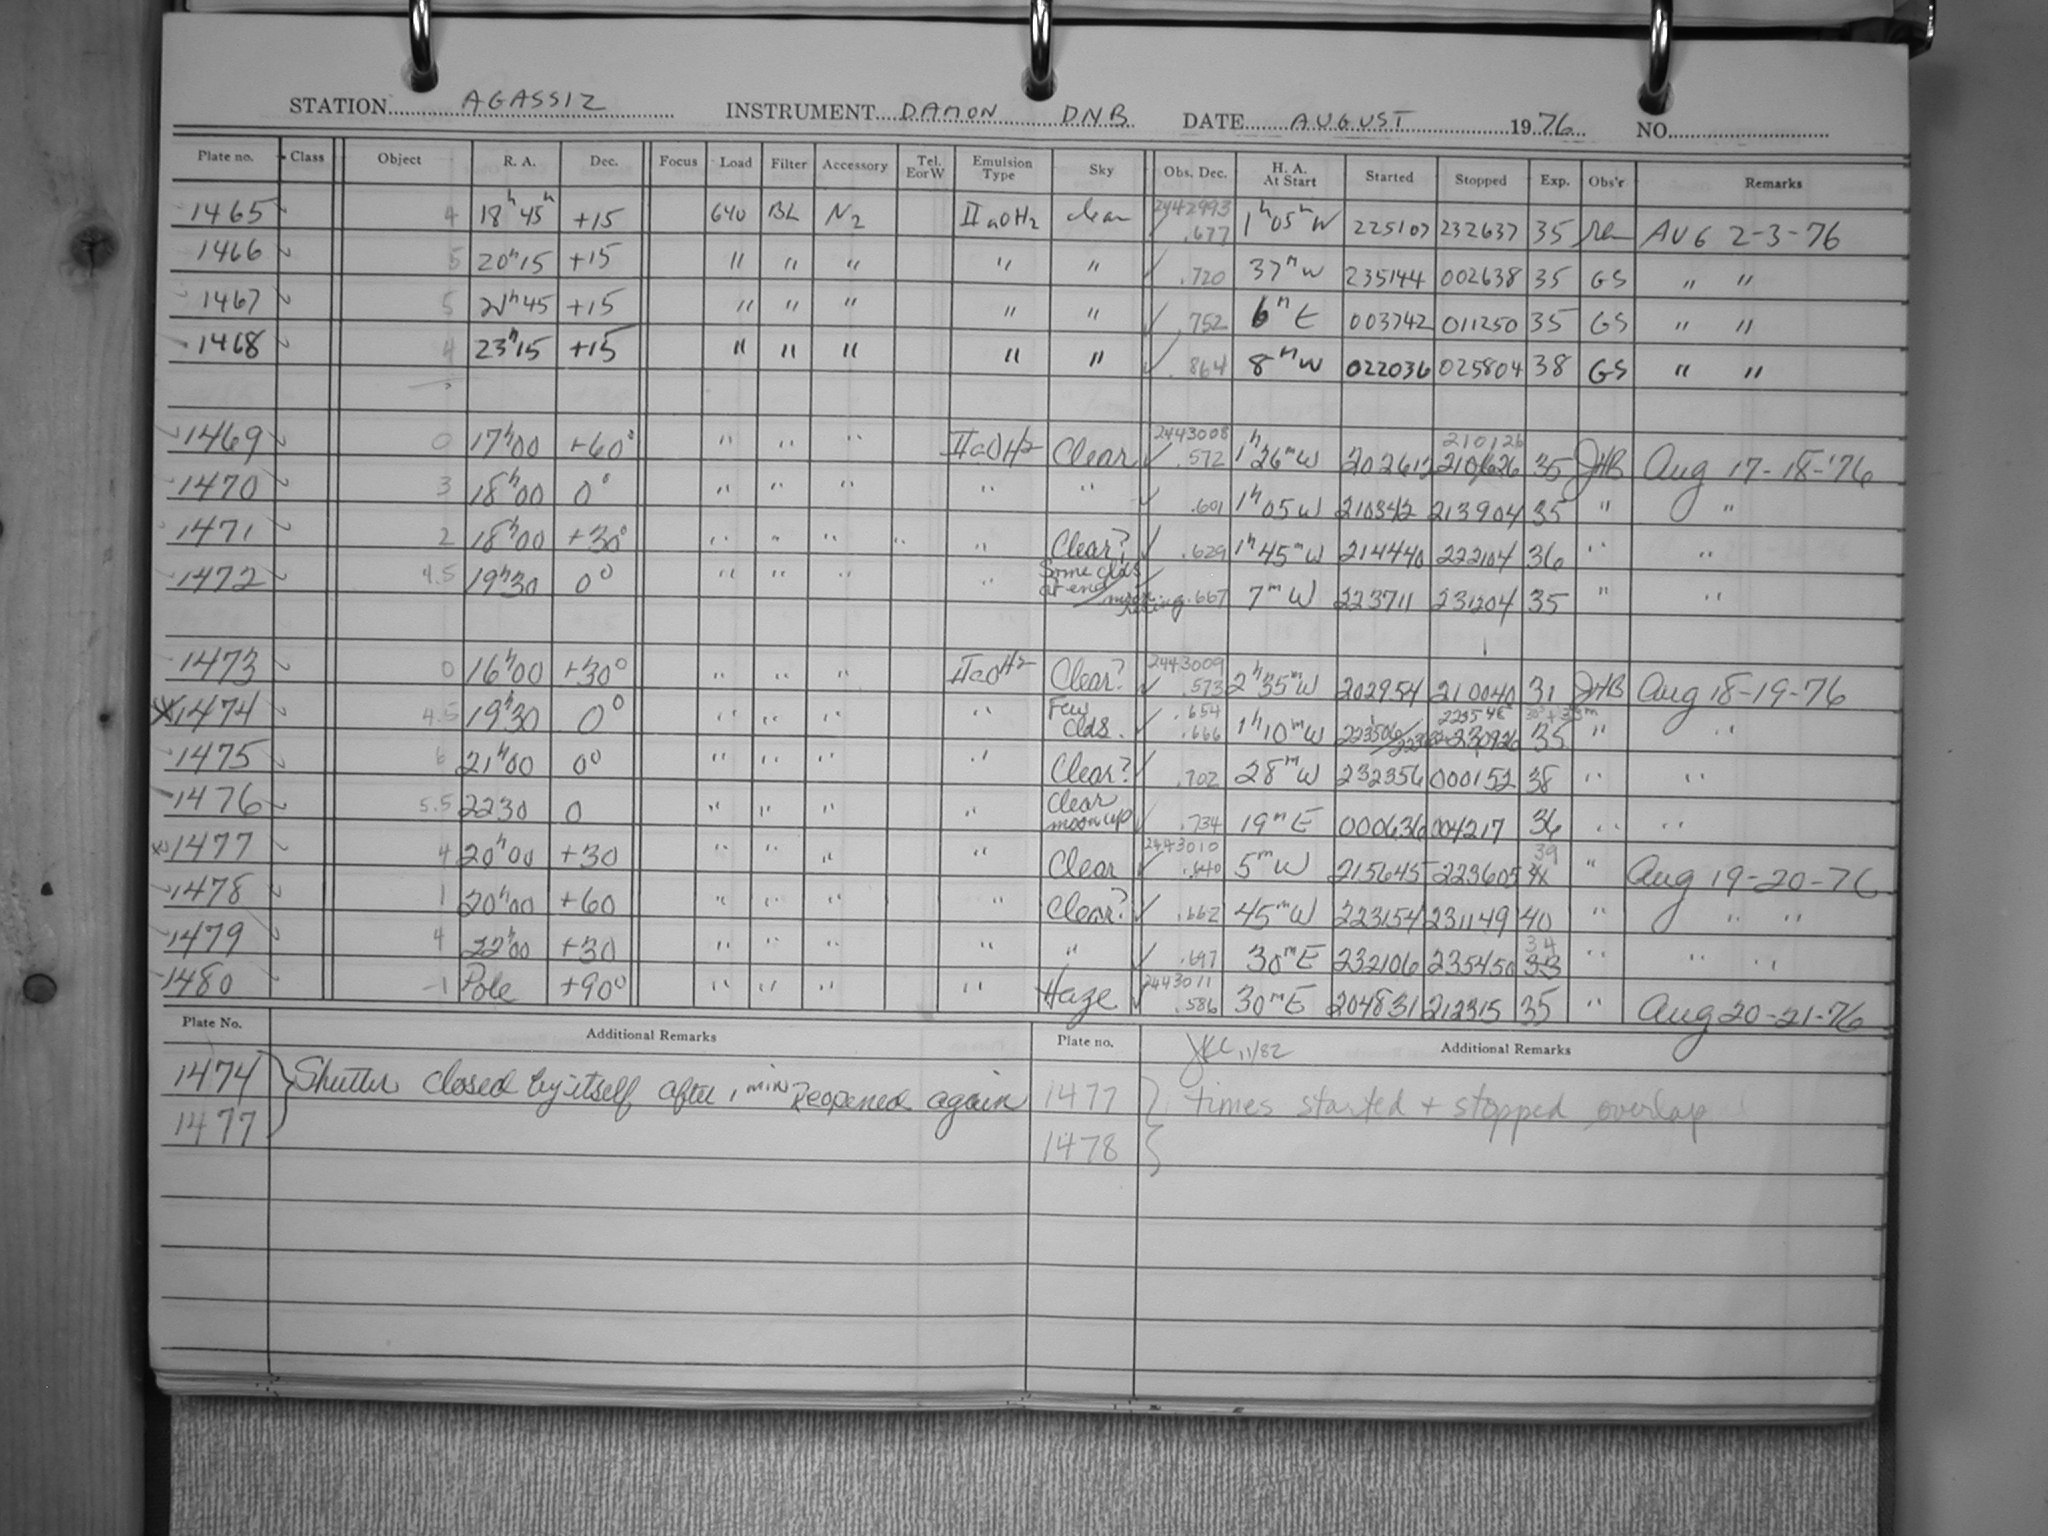 STATION AGASSIZ INSTRUMENT DAMON DNB DATE AUGUST 1976 NO.
Plate no. Class Object R. A. Dec. Focus Load Filter Accessory Tel. E or W Emulsion Type Sky Obs. Dec. H. A. At Start Started Stopped Exp. Obs'r Remarks
1465 4 18h 45m +15 640 BL N2 IIaOH2 clear 2442993 .677 1h 05m W 225107 232637 35 AUG 2-3-76
1466 5 20h15 +15 " " " " " .720 37m W 235144 002638 35 GS " "
1467 5 21h45 +15 " " " " " .752 6m E 003742 011250 35 GS " "
1468 4 23h15 +15 " " " " " .864 8m W 022036 025804 38 GS " "
1469 0 17h00 +60° " " " IIaOH2 Clear 2443008 .572 1h 26m W 202612 210126 35 JHB Aug 17-18-'76
1470 3 18h00 0° " " " " " .601 1h 05 W 210342 213904 35 " "
1471 2 18h00 +30° " " " " " Clear? .629 1h 45m W 214440 222104 36 " "
1472 4.5 19h30 0° " " " " Some clds at end moon rising .667 7m W 223711 231204 35 " "
1473 0 16h00 +30° " " " IIaOH2 Clear? 2443009 .573 2h 35m W 202954 210040 31 JHB Aug 18-19-76
1474 4.5 19h30 0° " " " " Few Clds. .654 .666 1h 10m W 223506 230926 35 " "
1475 6 21h00 0° " " " " Clear? .702 28m W 232356 000152 38 " "
1476 5.5 2230 0 " " " " Clear moon up .734 19m E 000636 004217 36 " "
1477 4 20h00 +30 " " " " Clear 2443010 .640 5m W 215645 223605 39 " Aug 19-20-76
1478 1 20h00 +60 " " " " Clear? .662 45m W 223154 231149 40 " " "
1479 4 22h00 +30 " " " " " .697 30m E 232106 235450 34 33 " " "
1480 -1 Pole +90° " " " " Haze 2443011 .586 30m E 204831 212315 35 " Aug 20-21-76
Plate No. Additional Remarks Plate no. Additional Remarks
11/82
1474 } Shutter closed by itself after 1 min Reopened again 1477 } times started + stopped overlap
1477 1478